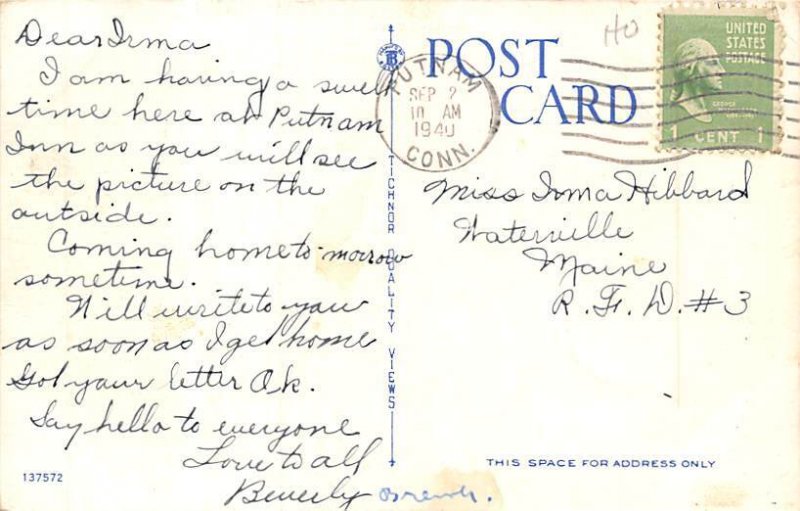 Dear Irma
I am having a swell
time here at Putnam
Inn as you will see
the picture on the
outside.
Coming home to-morrow
sometime.
Will write to you
as soon as I get home
Got your letter Ok.
Say hello to everyone
Love to all
Beverly
137572
TICHNOR QUALITY VIEWS
POST
CARD
HO
PUTNAM
SEP 2
10 AM
1940
CONN.
UNITED
STATES
POSTAGE
1 CENT 1
Miss Irma Hibbard
Waterville
Maine
R. F. D. #3
THIS SPACE FOR ADDRESS ONLY